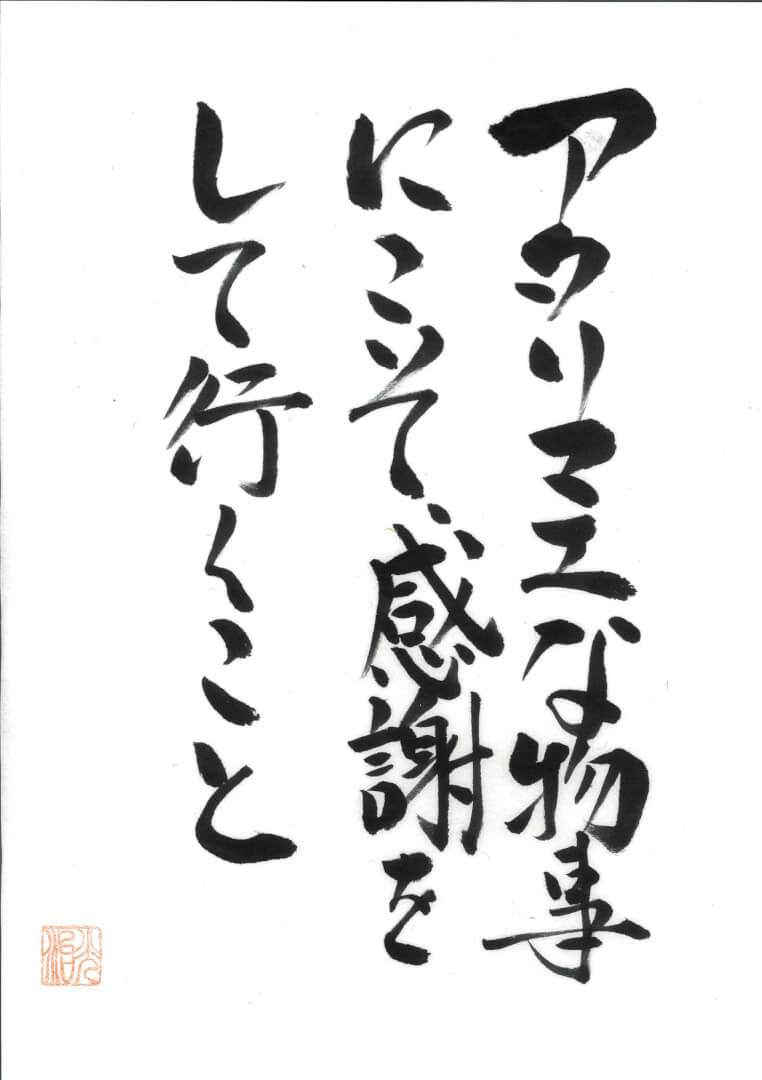 アタリマエな物事
にこいて、感謝を
して行くこと